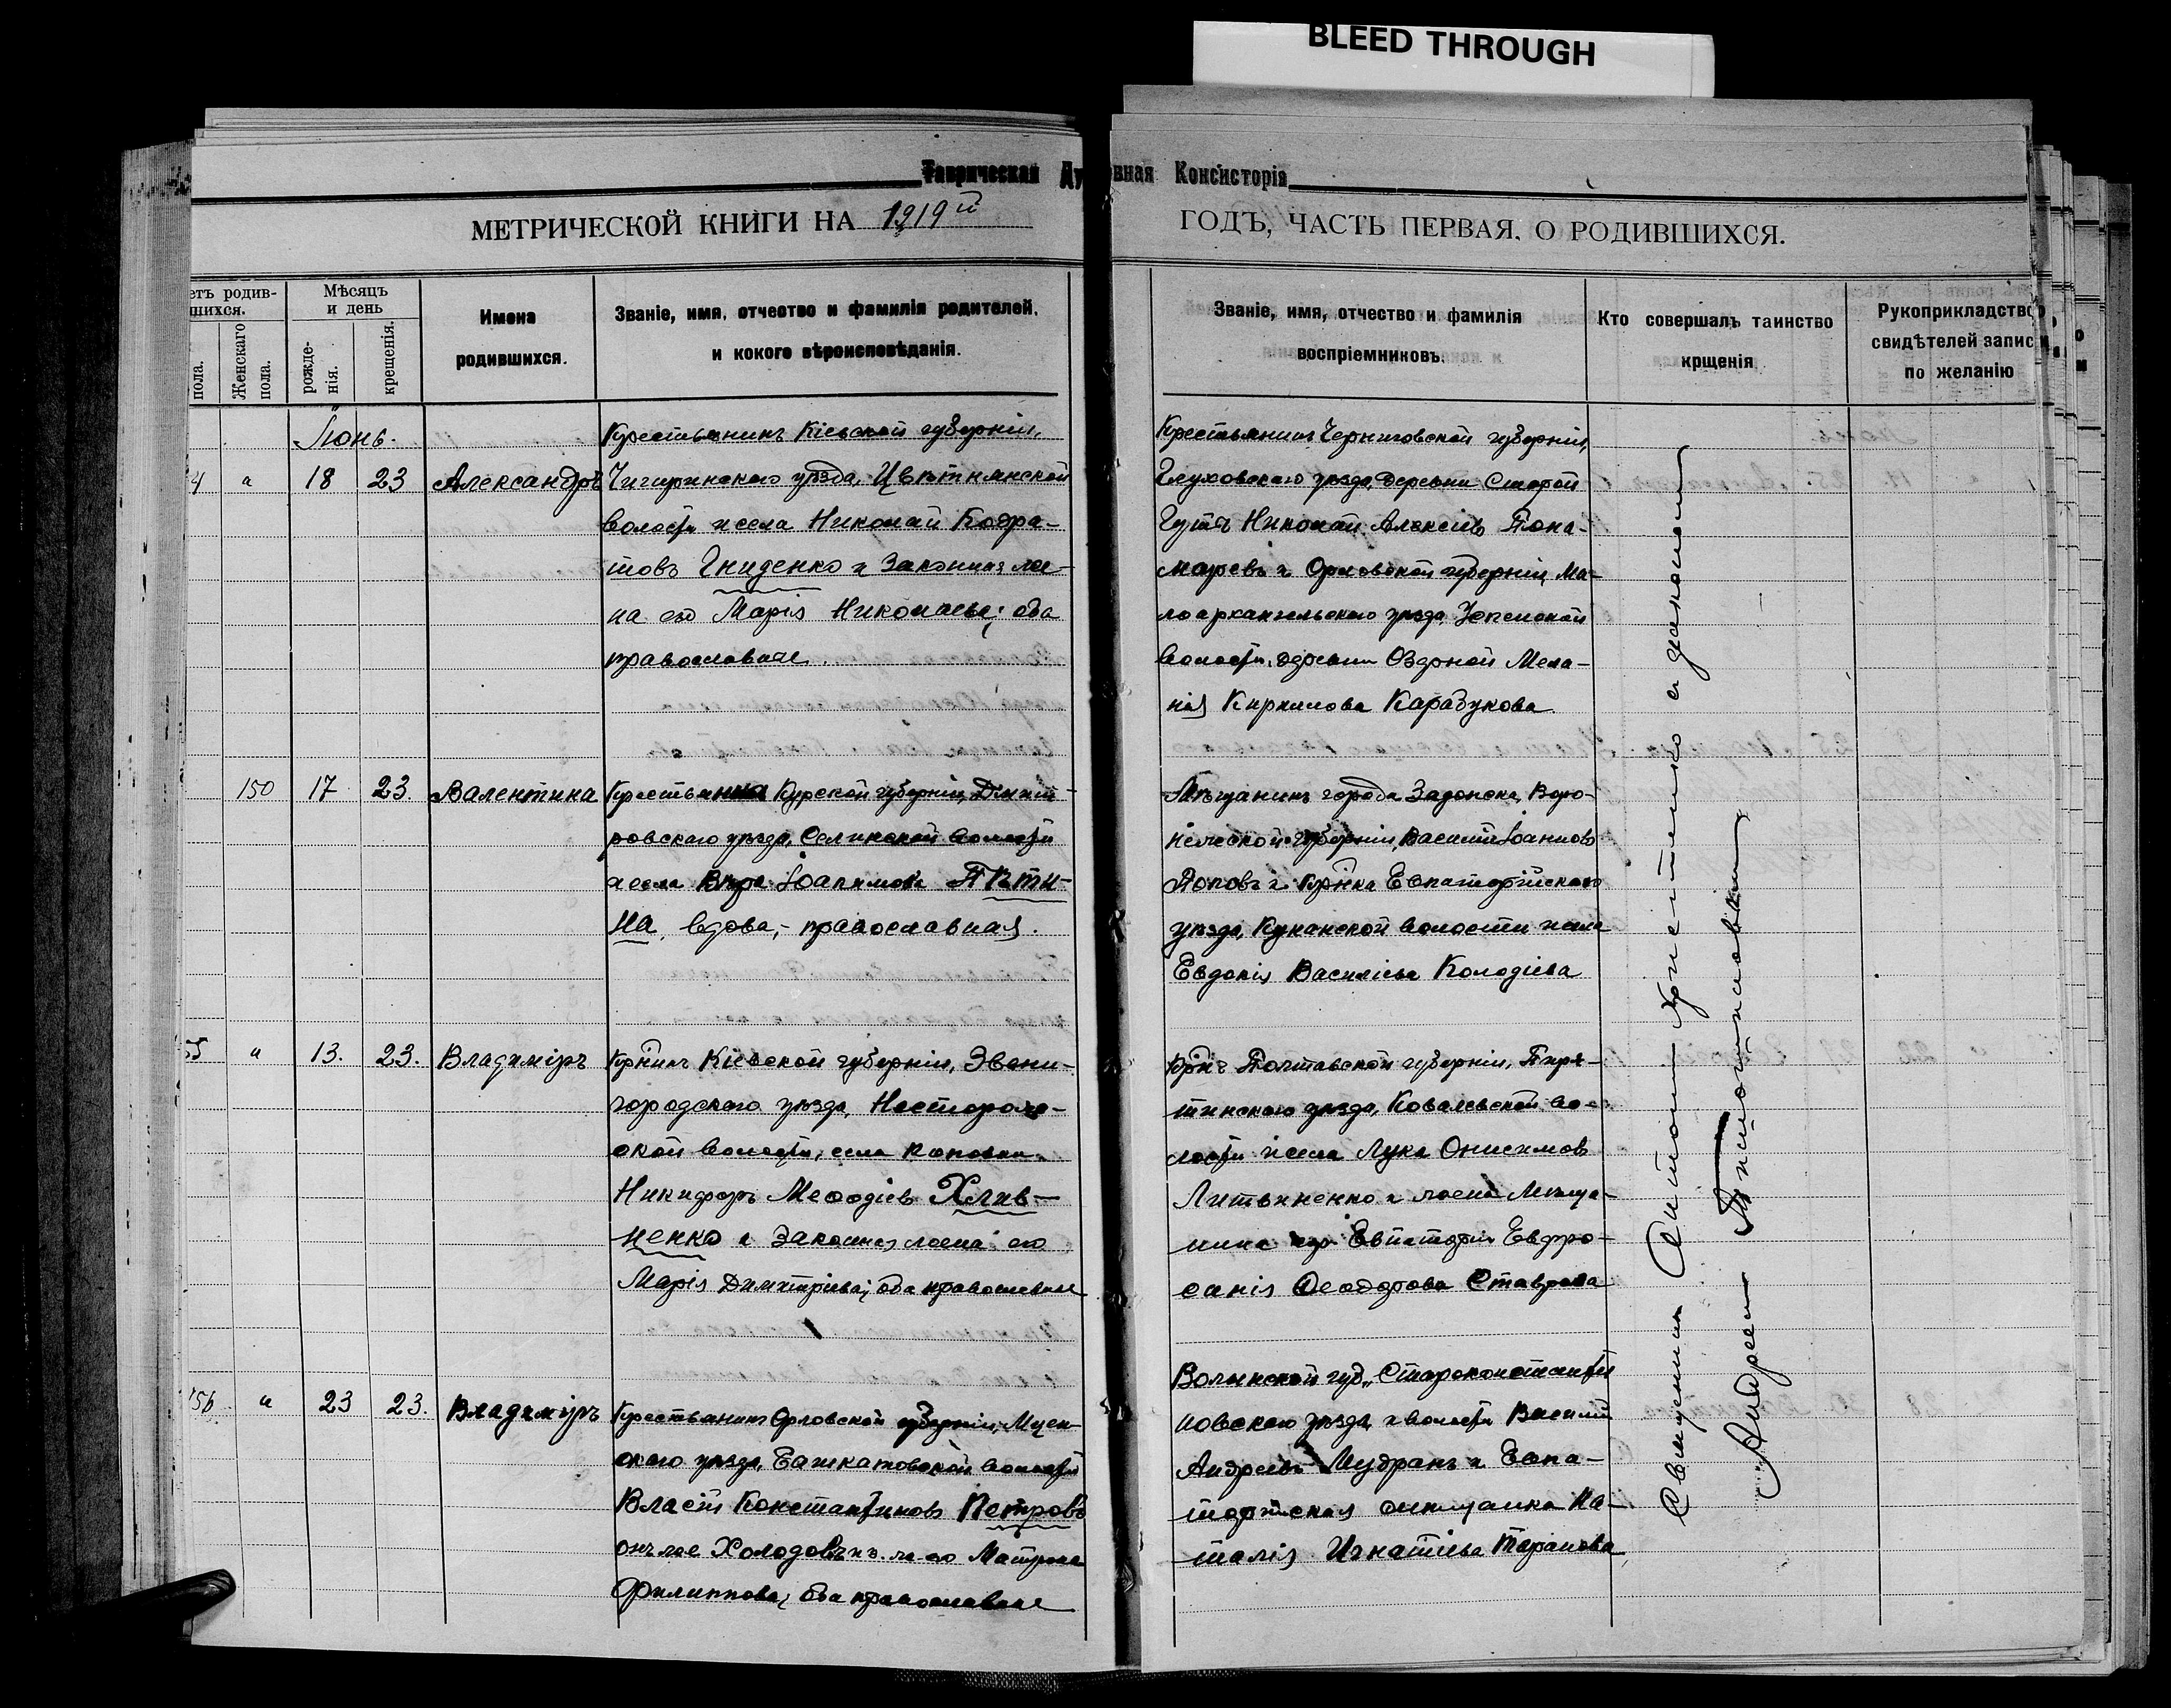 BLEED THROUGH
Таврическая Ду
овная Консисторія
МЕТРИЧЕСКОЙ КНИГИ НА 1919й
ГОДЪ, ЧАСТЬ ПЕРВАЯ, О РОДИВШИХСЯ.
етъ родив-
шихся.
пола.
Женскаго
пола.
Мѣсяцъ
и день
рожде-
нія.
крещенія.
Имена
родившихся.
Званіе, имя, отчество и фамилія родителей,
и кокого вѣроисповѣданія.
Званіе, имя, отчество и фамилія
воспріемниковъ.
Кто совершалъ таинство
крщенія
Рукоприкладство
свидѣтелей запис
по желанію
Іюнь.
4 а 18 23 Александръ
Крестьянинъ Кіевской губерніи,
Чигиринскаго уѣзда, Цвѣтнянской
волости и села Николай Кодра-
товъ Гниденко и законная же-
на его Марія Николаева; оба
православные.
Крестьянинъ Черниговской губерніи,
Глуховскаго уѣзда, деревни Старой
Гутъ Николай Алексіевъ Пона-
маревъ и Орловской губерніи, Ма-
лоархангельскаго уѣзда,
волости, деревни Озерной Мела-
нія Кириллова Карабукова.
150 17 23. Валентина
Крестьянка Курской губерніи, Дмит-
ровскаго уѣзда, Селинской волости
и села Вѣра Іоакимова Пѣти-
на, вдова, - православная.
Мѣщанинъ города Задонска, Воро-
нежской губерніи, Василій Іоанновъ
Поповъ и кр-нка Евпаторійскаго
уѣзда, Кунанской волости и села
Евдокія Васильева Колодіева
55 а 13. 23. Владиміръ
Кр-нинъ Кіевской губерніи, Звени-
городскаго уѣзда,
ской волости, села
Никифоръ Меѳодіевъ Хлив-
ненко и законная жена его
Марія Димитріева; оба православные
Кр-нъ Полтавской губерніи, Пиря-
тинскаго уѣзда, Ковалевской во-
лости и села Лука Онисимовъ
Литвиненко и жена мѣща-
нина гор. Евпаторіи Евфро-
санія Ѳеодорова Ставрова
156 а 23 23. Владиміръ
Крестьянинъ Орловской губерніи, Мцен-
скаго уѣзда, Башкатовской волости
Власій Константиновъ Петровъ
онъ же Холодовъ и з. ж. его Матрона
Филиппова; оба православные
Волынской губ., Староконстанти
новскаго уѣзда и волости Василій
Андреевъ Мудракъ и Евпа-
торійская мѣщанка На-
талія Игнатіева Таранова
Священникъ Антоній Христенко съ діакономъ
Андреемъ